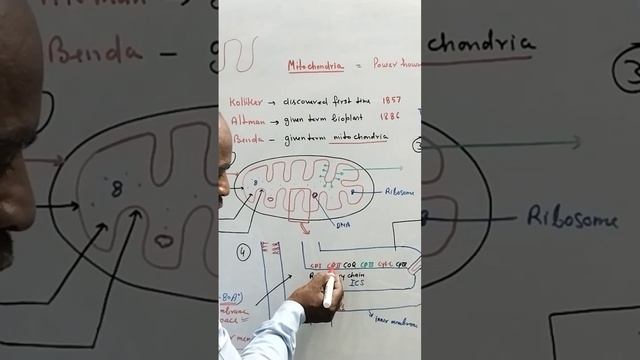 Mitochondria = Power hou
Kolliker → discovered first time 1857
Altman → given term bioplant 1886
Benda - given term mitochondria
8
Ribosome
DNA
4
CPI CPII COQ CPIII Cyt-C CPIV
chain
ICS
inner membrane
Benda - g
chondria
3
8
Ribosome